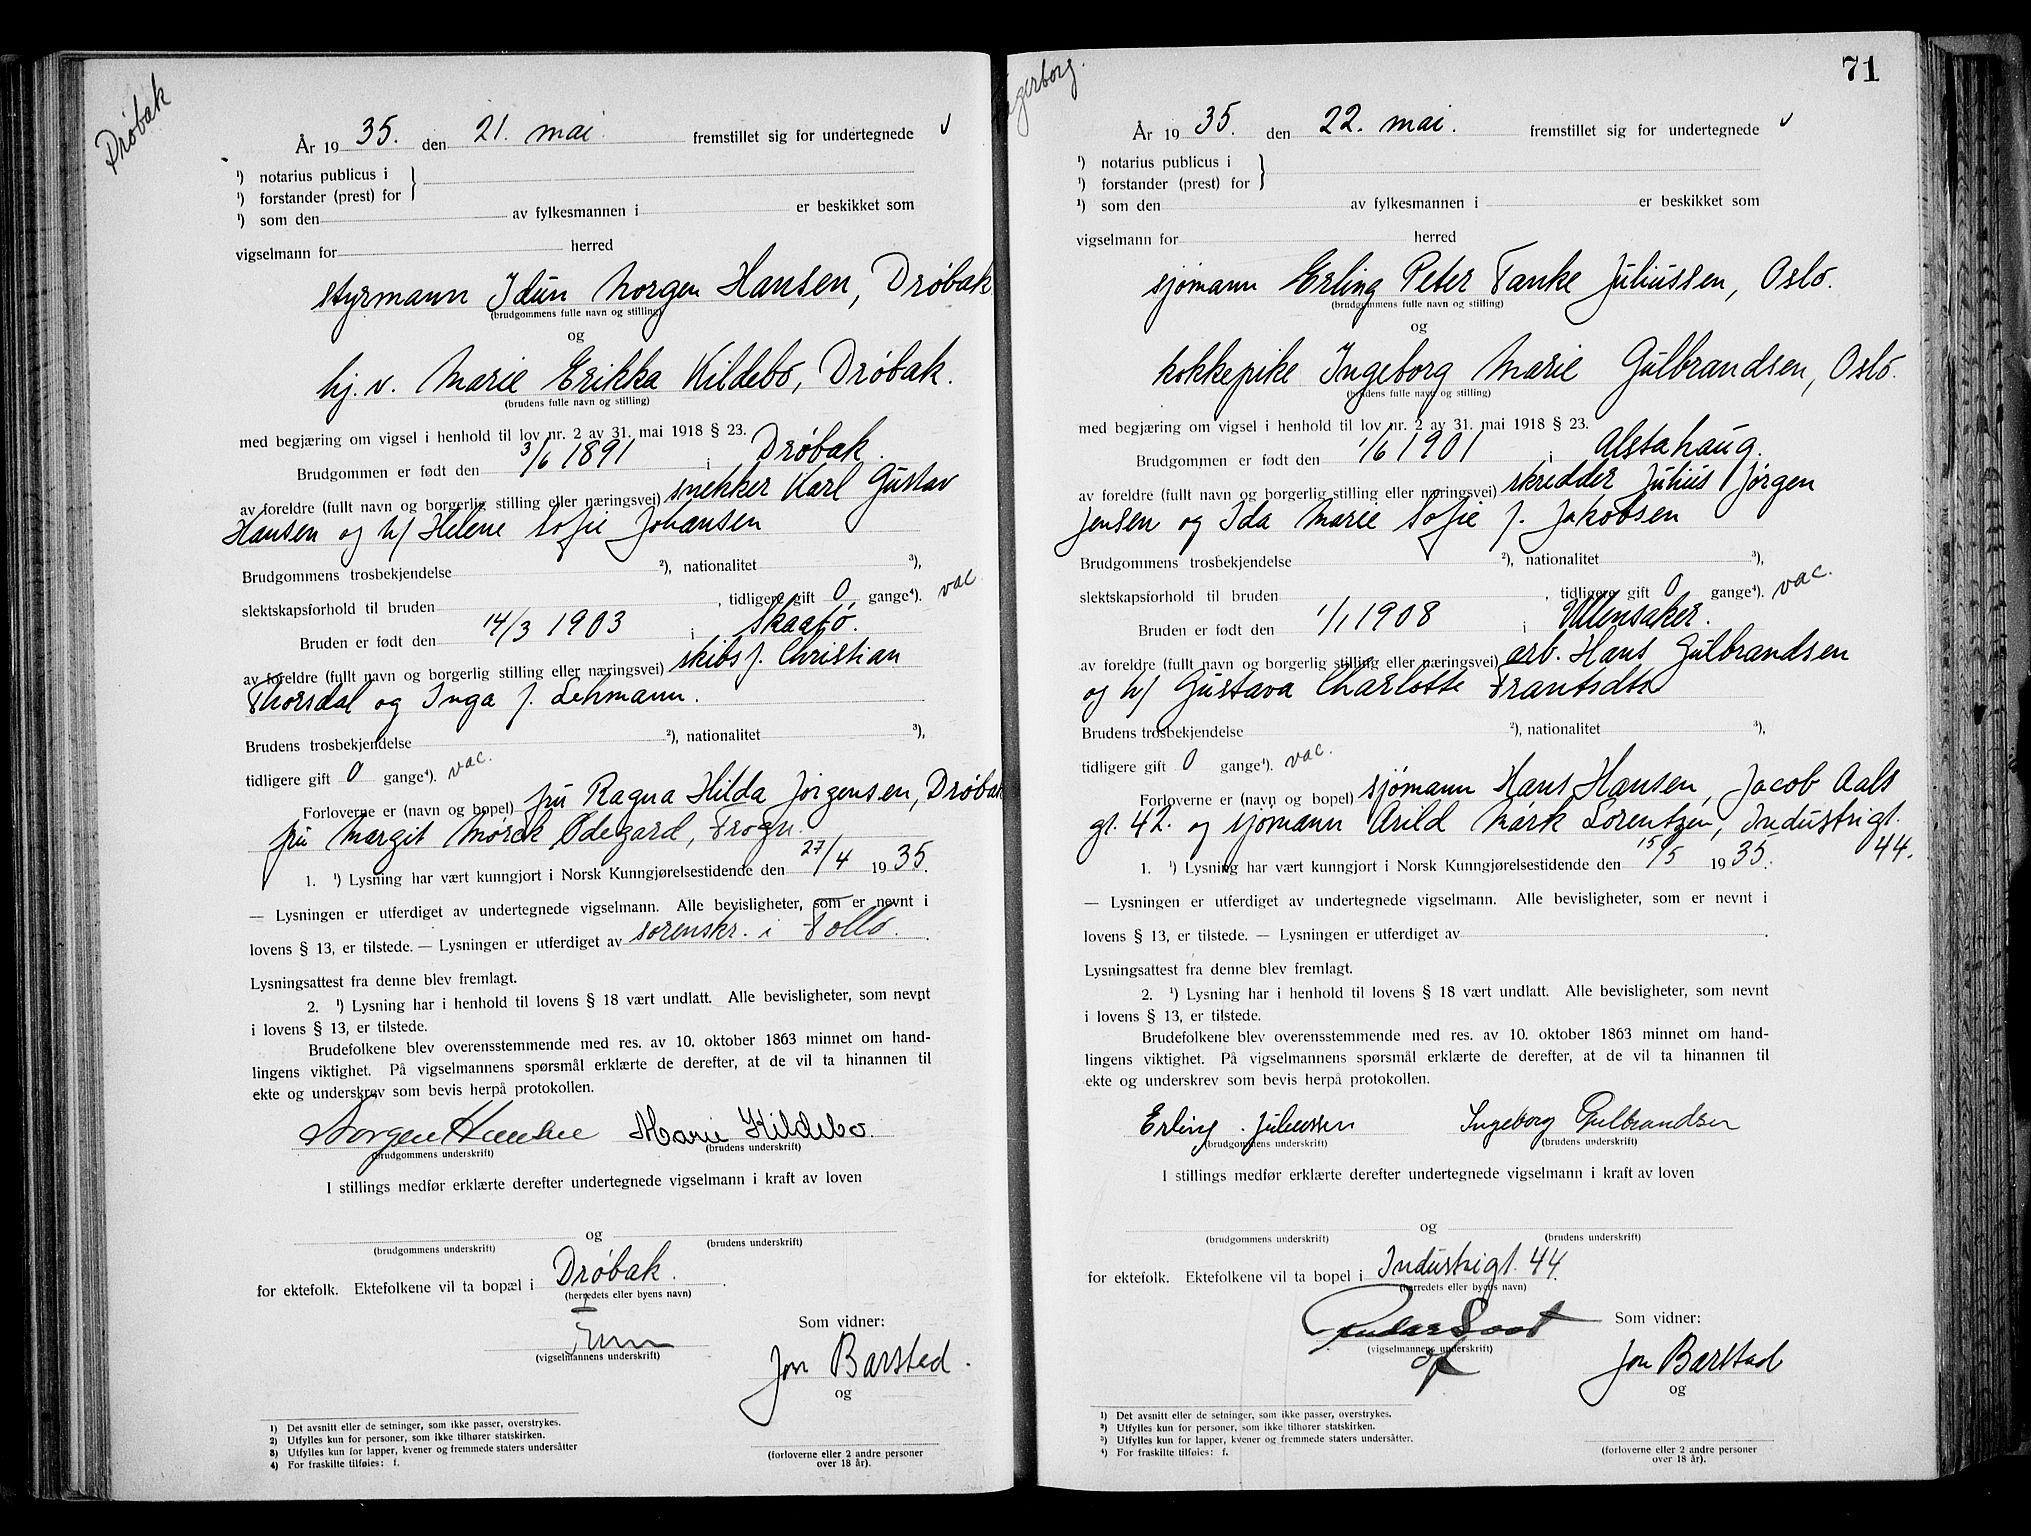 Drøbak
År 1935. den 21. mai. fremstillet sig for undertegnede
¹) notarius publicus i
¹) forstander (prest) for
¹) som den av fylkesmannen i er beskikket som
vigselmann for herred
styrmann Idun Norgen Hansen, Drøbak
(brudgommens fulle navn og stilling)
og
hj. v. Marie Erikka Kildebo, Drøbak.
(brudens fulle navn og stilling)
med begjæring om vigsel i henhold til lov nr. 2 av 31. mai 1918 § 23.
Brudgommen er født den 3/6 1891 i Drøbak.
av foreldre (fullt navn og borgerlig stilling eller næringsvei) snekker Karl Gustav
Hansen og h/ Helene Sofie Johansen
Brudgommens trosbekjendelse ²), nationalitet ³),
slektskapsforhold til bruden , tidligere gift 0 gange⁴). vac.
Bruden er født den 14/3 1903 i Skaatø.
av foreldre (fullt navn og borgerlig stilling eller næringsvei) skibsf. Christian
Thorsdal og Inga f. Lehmann.
Brudens trosbekjendelse ²), nationalitet ³),
tidligere gift 0 gange⁴). vac.
Forloverne er (navn og bopel) fru Ragna Hilda Jørgensen, Drøbak
fru Margit Mørck Ødegard, Frogn.
1. ¹) Lysning har vært kunngjort i Norsk Kunngjørelsestidende den 27/4 1935.
— Lysningen er utferdiget av undertegnede vigselmann. Alle bevisligheter, som er nevnt i
lovens § 13, er tilstede. — Lysningen er utferdiget av sorenskr. i Follo.
Lysningsattest fra denne blev fremlagt.
2. ¹) Lysning har i henhold til lovens § 18 vært undlatt. Alle bevisligheter, som nevnt
i lovens § 13, er tilstede.
Brudefolkene blev overensstemmende med res. av 10. oktober 1863 minnet om hand-
lingens viktighet. På vigselmannens spørsmål erklærte de derefter, at de vil ta hinannen til
ekte og underskrev som bevis herpå protokollen.
Norgen Hansen Marie Kildebo.
(brudgommens underskrift) (brudens underskrift)
I stillings medfør erklærte derefter undertegnede vigselmann i kraft av loven
og
(brudgommens underskrift) (brudens underskrift)
for ektefolk. Ektefolkene vil ta bopæl i Drøbak.
(herredets eller byens navn)
Som vidner:
(vigselmannens underskrift)
Jon Barstad.
og
¹) Det avsnitt eller de setninger, som ikke passer, overstrykes.
2) Utfylles kun for personer, som ikke tilhører statskirken.
3) Utfylles kun for lapper, kvener og fremmede staters undersåtter
4) For fraskilte tilføies: f.
(forloverne eller 2 andre personer
over 18 år).
71
gerborg.
År 1935. den 22. mai. fremstillet sig for undertegnede
¹) notarius publicus i
¹) forstander (prest) for
¹) som den av fylkesmannen i er beskikket som
vigselmann for herred
sjømann Erling Peter Tanke Juliussen, Oslo.
(brudgommens fulle navn og stilling)
og
kokkepike Ingeborg Marie Gulbrandsen, Oslo.
(brudens fulle navn og stilling)
med begjæring om vigsel i henhold til lov nr. 2 av 31. mai 1918 § 23.
Brudgommen er født den 1/6 1901 i Alstahaug.
av foreldre (fullt navn og borgerlig stilling eller næringsvei) skredder Julius Jørgen
Jensen og Ida Marie Sofie f. Jakobsen
Brudgommens trosbekjendelse ²), nationalitet ³),
slektskapsforhold til bruden , tidligere gift 0 gange⁴). vac.
Bruden er født den 1/1 1908 i Ullensaker.
av foreldre (fullt navn og borgerlig stilling eller næringsvei) arb. Hans Gulbrandsen
og h/ Gustava Charlotte Frantsdtr
Brudens trosbekjendelse ²), nationalitet ³),
tidligere gift 0 gange⁴). vac.
Forloverne er (navn og bopel) sjømann Hans Hansen, Jacob Aals
gt. 42. og sjømann Arild Mørk Lorentzen, Industrigt.
44.
1. ¹) Lysning har vært kunngjort i Norsk Kunngjørelsestidende den 15/5 1935.
— Lysningen er utferdiget av undertegnede vigselmann. Alle bevisligheter, som er nevnt i
lovens § 13, er tilstede. — Lysningen er utferdiget av .
Lysningsattest fra denne blev fremlagt.
2. ¹) Lysning har i henhold til lovens § 18 vært undlatt. Alle bevisligheter, som nevnt
i lovens § 13, er tilstede.
Brudefolkene blev overensstemmende med res. av 10. oktober 1863 minnet om hand-
lingens viktighet. På vigselmannens spørsmål erklærte de derefter, at de vil ta hinannen til
ekte og underskrev som bevis herpå protokollen.
Erling Juliussen Ingeborg Gulbrandsen
(brudgommens underskrift) (brudens underskrift)
I stillings medfør erklærte derefter undertegnede vigselmann i kraft av loven
og
(brudgommens underskrift) (brudens underskrift)
for ektefolk. Ektefolkene vil ta bopel i Industrigt. 44.
(herredets eller byens navn)
Som vidner:
(vigselmannens underskrift)
Jon Barstad
og
1) Det avsnitt eller de setninger, som ikke passer, overstrykes.
²) Utfylles kun for personer, som ikke tilhører statskirken.
³) Utfylles kun for lapper, kvener og fremmede staters undersåtter.
⁴) For fraskilte tilføies: f.
(forloverne eller 2 andre personer
over 18 år).